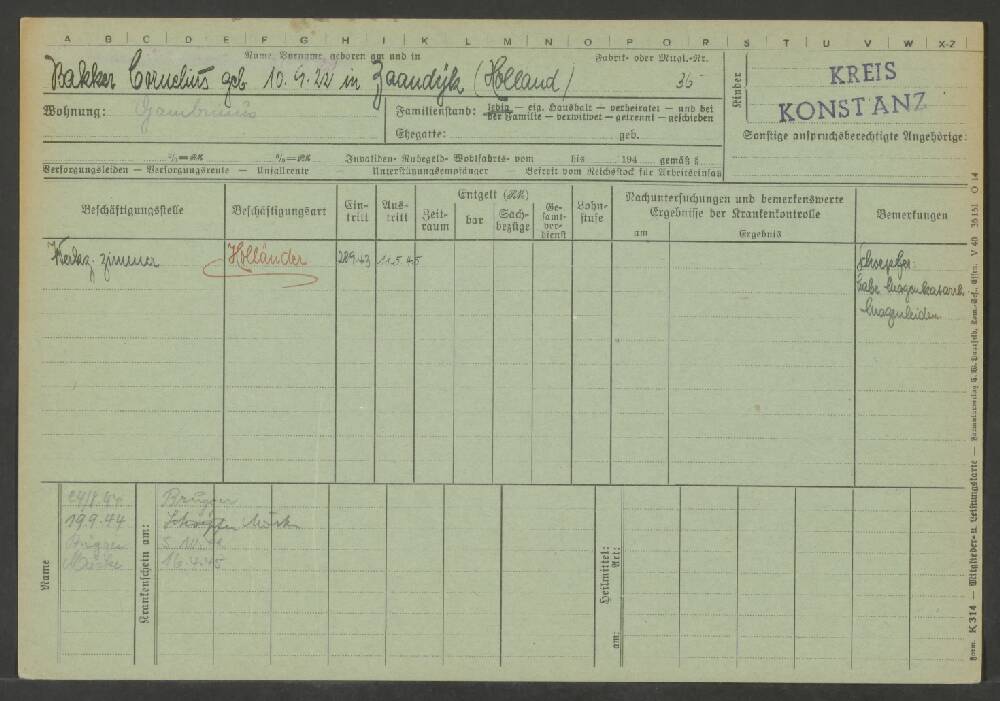 A B C D E F G H I K L M N O P Q R S T U V W X-Z
Name, Vorname, geboren am und in
Fabrik- oder Mitgl.-Nr.
Bakker Cornelius geb 10.9.22 in Zaandijk (Holland)
36
Kinder
KREIS
KONSTANZ
Wohnung: Gambrinus
Familienstand: ledig — eig. Haushalt — verheiratet — und bei
der Familie — verwitwet — getrennt — geschieden
Ehegatte: geb.
Sonstige anspruchsberechtigte Angehörige:
%=RM %=RM Invaliden- Ruhegeld- Wohlfahrts- vom bis 194 gemäß §
Versorgungsleiden — Versorgungsrente — Unfallrente — Unterstützungsempfänger — Befreit vom Reichsstock für Arbeitseinsatz
Beschäftigungsstelle
Beschäftigungsart
Ein-
tritt
Aus-
tritt
Entgelt (RM)
Zeit-
raum
bar
Sach-
bezüge
Ge-
samt-
ver-
dienst
Lohn-
stufe
Nachuntersuchungen und bemerkenswerte
Ergebnisse der Krankenkontrolle
am
Ergebnis
Bemerkungen
Werkz. zimmer
Holländer
28.9.43
11.5.45
Magenkatarrh
Magenleiden
Name
19.9.44
Krankenschein am:
Brugger
16.4.45
Heilmittel:
Art:
am:
Form. K 314 — Mitglieder- u. Leistungskarte —
V 40 36151 O 14